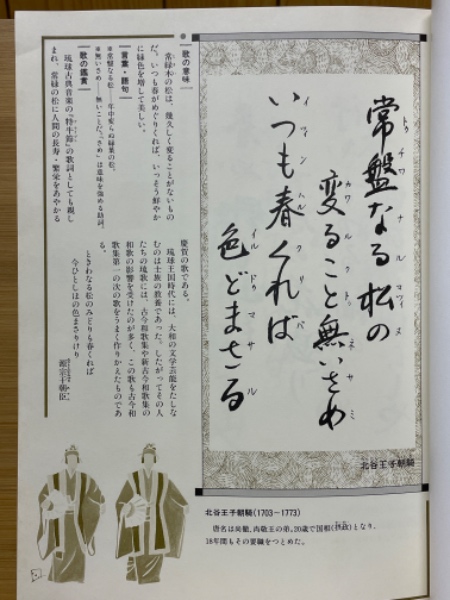 常盤なる松の
トゥチワ ナル マツィヌ
変ること無いさめ
カワル クトゥ ネサミ
いつも春くれば
イツィン ハル クリバ
色どまさる
イル ドゥ マサル
北谷王子朝騎
北谷王子朝騎(1703～1773)
20歳で国相(摂政)となり、
18年間もその要職をつとめた。
歌の意味
常緑木の松は、幾久しく変ることがないもの
だ。いつも春がめぐりくれば、いっそう鮮やか
に緑色を増して美しい。
言葉・語句
※常盤なる松——年中変らぬ緑葉の松。
※無いさめ——無いことだ。「さめ」は意味を強める助詞。
歌の鑑賞
琉球古典音楽の『特牛節』の歌詞としても親し
まれ、常緑の松に人間の長寿・繁栄をあやかる
慶賀の歌である。
琉球王国時代には、大和の文学芸能をたしな
むのは士族の教養であった。したがってその人
たちの琉歌には、古今和歌集や新古今和歌集の
和歌の影響を受けたのが多く、この歌も古今和
歌集第一の次の歌をうまく作りかえたものであ
る。
ときわなる松のみどりも春くれば
今ひとしほの色まさりけり
源宗于朝臣